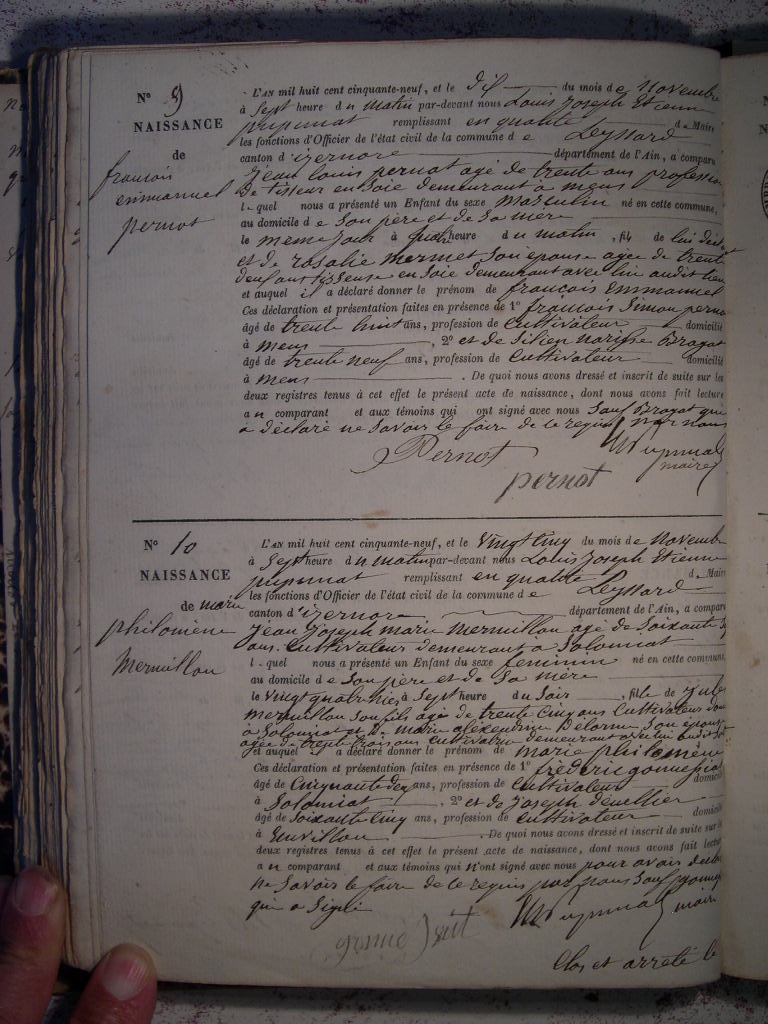 N° 9
NAISSANCE
de
francois
emmanuel
pernot
L'AN mil huit cent cinquante-neuf, et le dix du mois de Novembre
à Sept heure du matin par-devant nous Louis Joseph Etienne
pupunat remplissant en qualité de Maire
les fonctions d'Officier de l'état civil de la commune de Leyssard
canton d'izernore département de l'Ain, a comparu
Jean Louis pernot agé de trente ans profession
de tisseur en Soie demeurant a mens
lequel nous a présenté un Enfant du sexe masculin né en cette commune,
au domicile de Son père et de Sa mère
le meme jour à quatre heure du matin, fils de lui déclarant
et de rosalie mermet Son épouse agée de trente
deux ans tisseuse en Soie demeurant avec lui audit lieu
et auquel il a déclaré donner le prénom de francois emmanuel
Ces déclaration et présentation faites en présence de 1° francois Simon pernot
âgé de trente huit ans, profession de Cultivateur domicilié
à mens, 2° et de narcisse Bragat
âgé de trente neuf ans, profession de Cultivateur domicilié
à mens. De quoi nous avons dressé et inscrit de suite sur les
deux registres tenus à cet effet le présent acte de naissance, dont nous avons fait lecture
au comparant et aux témoins qui ont signé avec nous Sauf Bragat qui
a déclaré ne Savoir le faire de ce requis par nous
Pernot
pupunat
maire
pernot
N° 10
NAISSANCE
de marie
philomène
Mermillon
L'AN mil huit cent cinquante-neuf, et le Vingt Cinq du mois de Novembre
à Sept heure du matin par-devant nous Louis Joseph Etienne
pupunat remplissant en qualité de Maire
les fonctions d'Officier de l'état civil de la commune de Leyssard
canton d'izernore département de l'Ain, a comparu
Jean Joseph marie Mermillon agé de Soixante
ans. Cultivateur demeurant a Solomiat
lequel nous a présenté un Enfant du sexe feminin né en cette commune,
au domicile de Son père et de Sa mère
le Vingt quatre à Sept heure du Soir, fille de Jules
Mermillon Son fils agé de trente Cinq ans Cultivateur
a Solomiat et de marie aléxandrine Delorme Son épouse
agée de trente trois ans Cultivatrice demeurant avec lui audit lieu
et auquel il a déclaré donner le prénom de marie philomène
Ces déclaration et présentation faites en présence de 1° frédéric
âgé de Cinquante ans, profession de Cultivateur domicilié
à Solomiat, 2° et de Joseph
âgé de Soixante Cinq ans, profession de Cultivateur domicilié
à. De quoi nous avons dressé et inscrit de suite sur les
deux registres tenus à cet effet le présent acte de naissance, dont nous avons fait lecture
au comparant et aux témoins qui n'ont signé avec nous pour avoir déclaré
ne Savoir le faire de ce requis par nous Sauf
qui a Signé
pupunat maire
Clos et arreté le